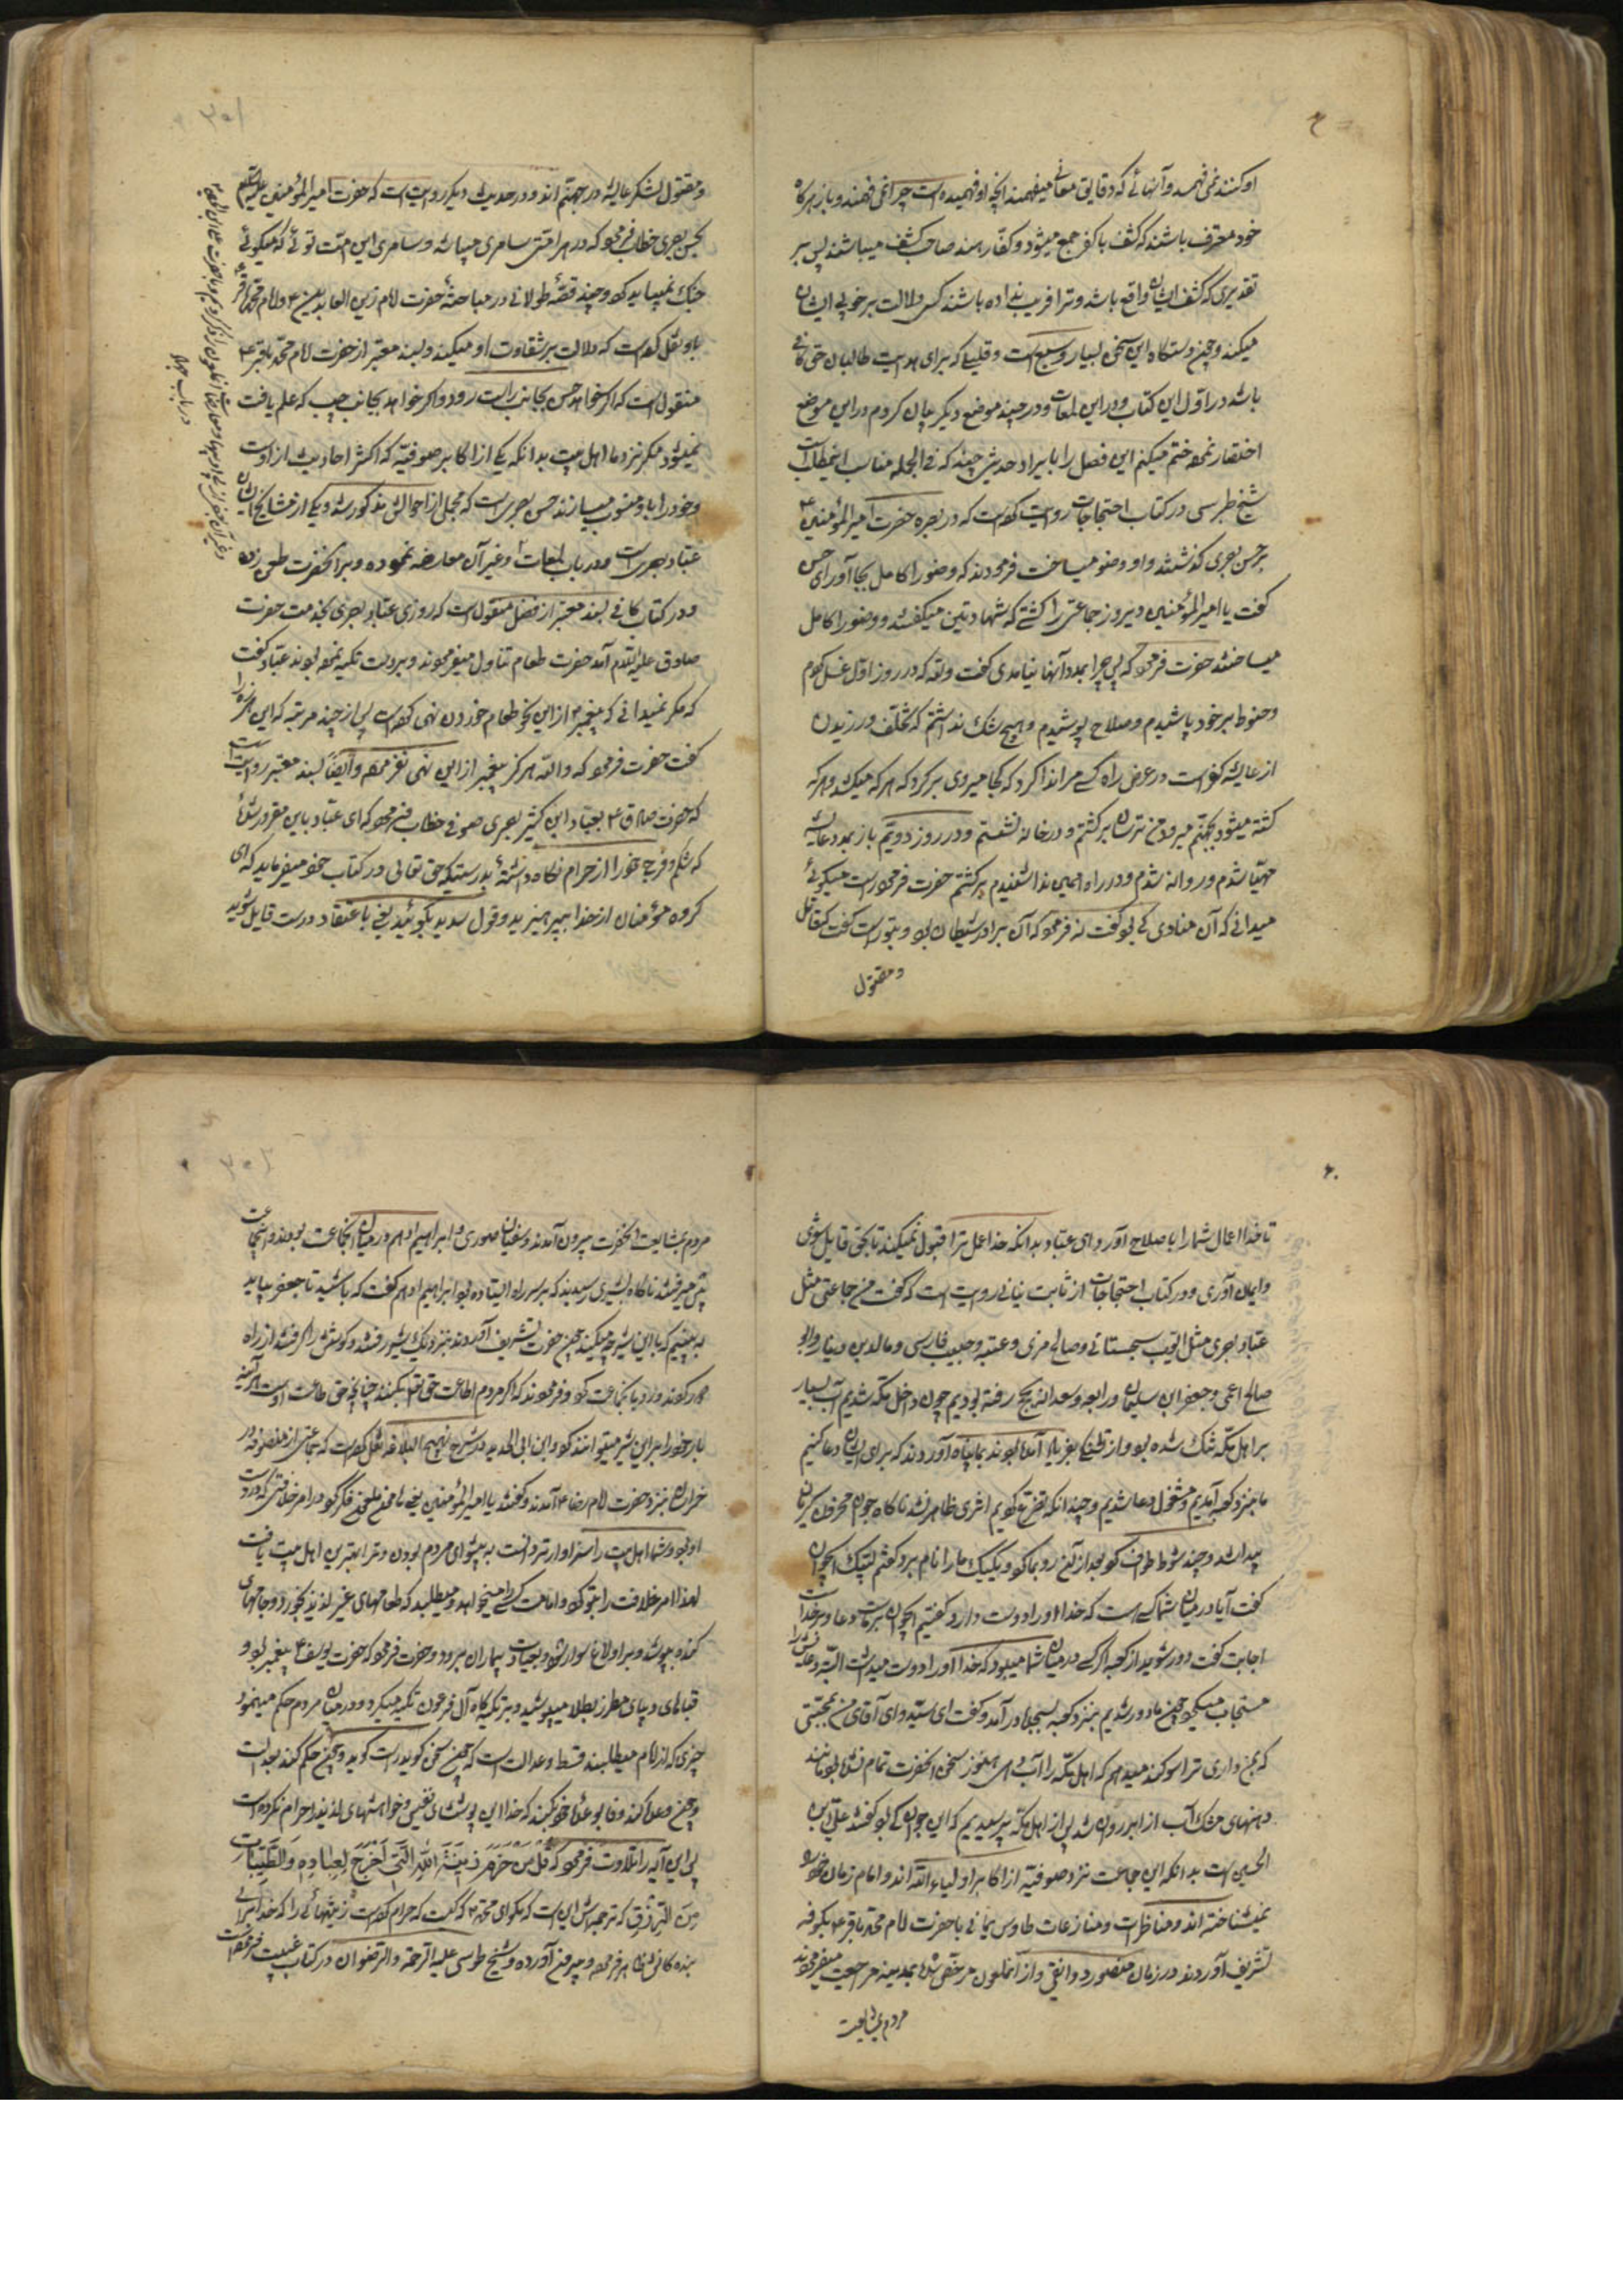 او کنند نمی فهمد و آنهائی که دقایق معانی میفهمند آنچه او فهمیده است چرا نمی فهمند و باز هرکاه
خود معترف باشند که کشف با کفر جمع میشود و کفّار هند صاحب کشف میباشند پس بر
تقدیری که کشف ایشان واقع باشد و ترا فریب نداده باشند کی دلالت بر خوبی ایشان
میکند و چون دستکاه این سخن بسیار وسیع است و قلیلی که برای هدایت طالبان حق کافی
باشد در اوّل این کتاب و در این لمعات و در چند موضع دیکر بیان کردم در این موضع
اختصار نموده ختم میکنم این فصل را بایراد حدیثی چند که فی الجمله مناسب این مطلب است
شیخ طبرسی در کتاب احتجاجات روایت کرده است که در بصره حضرت امیرالمؤمنین ع
بر حسن بصری کذشتند و او وضو میساخت فرمودند که وضو را کامل بجا آور ای حسن
کفت یا امیرالمؤمنین دیروز جماعتی را کشتی که شهادتین میکفتند و وضو را کامل
میساختند حضرت فرمود که پس چرا بمدد آنها نیامدی کفت والله که در روز اول غسل کردم
و حنوط بر خود پاشیدم و سلاح پوشیدم و هیچ شک نداشتم که تخلّف ورزیدن
از عایشه کفر است در عرض راه کسی مرا ندا کرد که کجا میروی برکرد که هر که میکشد و هر که
کشته میشود بجهنّم میرود من ترسان برکشتم و در خانه نشستم و در روز دویّم باز بمدد عایشه
مهیّا شدم و روانه شدم و در راه همین ندا شنیدم برکشتم حضرت فرمود راست میکوئی
میدانی که آن منادی که بود کفت نه فرمود که آن برادرت شیطان بود و بتو راست کفت که قاتل
و مقتول
و مقتول لشکر عایشه در جهنّم اند و در حدیث دیکر روایت است که حضرت امیرالمؤمنین علیه السلام
بحسن بصری خطاب فرمود که در هر امتی سامری میباشد و سامری این امّت توئی که میکوئی
جنک نمیباید کرد و چند قصّه طولانی در مباحثهٔ حضرت امام زین العابدین ع و امام محمّد باقر ع
با او نقل کرده است که دلالت بر شقاوت او میکند و بسند معتبر از حضرت امام محمّد باقر ع
منقول است که اکر خواهد حسن بجانب راست رود و اکر خواهد بجانب چپ که علم یافت
نمیشود مکر نزد ما اهل بیت بدانکه یکی از اکابر صوفیّه که اکثر احادیث از اوست
و خود را باو منسوب میسازند حسن بصری است که مجملی از احوالش مذکور شد و یکی از مشایخ ایشان
عبّاد بصریست و در باب لمعات و غیر آن معارضه نموده و بر آنحضرت طعن زده
و در کتاب کافی بسند معتبر از فضل منقول است که روزی عبّاد بصری بخدمت حضرت
صادق علیه السّلام آمد حضرت طعام تناول میفرمودند و بر دست تکیه نموده بودند عبّاد کفت
که مکر نمیدانی که پیغمبر ص از این نحو طعام خوردن نهی کرده است پس از چند مرتبه که این هرزه را
کفت حضرت فرمود که والله هرکز پیغمبر از این نهی نفرموده و ایضاً بسند معتبر روایتست
که حضرت صادق ع بعبّاد ابن کثیر بصری صوفی خطاب فرمود که ای عبّاد باین مغرور شدهٔ
که شکم و فرج خود را از حرام نکاه داشتهٔ بدرستیکه حق تعالی در کتاب خود میفرماید که ای
کروه مؤمنان از خدا بپرهیزید و قول سدید بکوئید یعنی باعتقاد درست قایل شوید
تا خدا اعمال شما را باصلاح آورد ای عبّاد بدانکه خدا عمل ترا قبول نمیکند تا بحق قایل شوی
و ایمان آوری و در کتاب احتجاجات از ثابت بنانی روایت است که کفت من و جماعتی مثل
عبّاد بصری مثل ایّوب سجستانی و صالح مرّی و عتبه و حبیب فارسی و مالک دینار و ابو
صالح اعمی و جعفر ابن سلیمان و رابعه و سعدانه بحج رفته بودیم چون داخل مکّه شدیم آب بسیار
بر اهل مکّه تنک شده بود و از تشنکی بفریاد آمده بودند بما پناه آوردند که برای ایشان دعا کنیم
ما بنزد کعبه آمدیم و مشغول دعا شدیم و چندانکه تضرّع کردیم اثری ظاهر نشد ناکاه جوان محزونی کریان
پیدا شد و چند شوط طواف کرد بعد از آن رو بما کرد و یک یک ما را نام برد و کفتیم لبیک ای جوان
کفت آیا در میان شما کسی هست که خدا او را دوست دارد کفتیم ای جوان بر ماست دعا و بر خداست
اجابت کفت دور شوید از کعبه اکر کسی در میان شما میبود که خدا او را دوست میداشت البتّه دعایش را
مستجاب میکرد چون ما دور شدیم بنزد کعبه بسجده در آمد و کفت ای سیّد و ای آقای من بمحبّتی
که بمن داری ترا سوکند میدهم که اهل مکّه را آب دهی هنوز سخن آنحضرت تمام نشده بود مانند
دهنهای مشک آب از ابر روان شد پس از اهل مکّه پرسیدیم که این جوان که بود کفتند علی ابن
الحسین است بدانکه این جماعت نزد صوفیّه از اکابر اولیاء الله اند و امام زمان خود را
نمیشناخته اند و مناظرات و منازعات طاوس یمانی با حضرت امام محمد باقر ع بکوفه
تشریف آوردند در زمان منصور دوانقی و از آنملعون مرخّص شده بمدینه مراجعت میفرمودند
مردم بمشایعت
مردم بمشایعت آنحضرت بیرون آمدند و سفیان صوری و ابراهیم ادهم در میان آنجماعت بودند و آنجماعت
پیش میرفتند ناکاه بشیری رسیدند که بر سر راه ایستاده بود ابراهیم ادهم کفت که باشید تا جعفر بیاید
به بینیم که با این شیر چه میکند چون حضرت تشریف آوردند بنزدیک شیر رفتند و کوشش را کرفتند از راه
دور کردند و رو بآنجماعت کرد و فرمودند که اکر مردم اطاعت حق تعالی بکنند چنانچه حق طاعت اوست هرآینه
بار خود را بر این شیر میتوانند کرد و ابن ابی الحدید در شرح نهج البلاغه نقل کرده است که جماعتی از متصوّفه در
خراسان بنزد حضرت امام رضا ع آمدند و کفتند یا امیرالمؤمنین یعنی مأمون ملعون فکر کرد در امر خلافتی که در دست
او بود و شما اهل بیت را سزاوارتر دانست به پیشوای مردم بودن و ترا بهترین اهل بیت یافت
لهذا امر خلافت را بتو کرد و امامت کسی را میخواهد و میطلبد که طعامهای غیر لذیذ بخورد و جامهای
کنده بپوشد و بر اولاغ سوار شود و بعیادت بیماران برود و حضرت فرمود که حضرت یوسف ع پیغمبر بود و
قباهای دیبای مطرز بطلا میپوشید و بر تکیه کاه آل فرعون تکیه میکرد و در میان مردم حکم مینمود
چیزی که از امام میطلبند قسط و عدالت است که چون سخن کوید راست کوید و چون حکم کند بعدالت
و چون وعده کند وفا بوعدهٔ خود بکند که خدا این پوششهای نفیس و خواهشهای لذیذ را حرام نکرده است
پس این آیه را تلاوت فرمود که قُلْ مَنْ حَرَّمَ زِینَةَ اللّهِ الَّتِی اَخْرَجَ لِعِبادِهِ وَ الطَّیِّباتِ
مِنَ الرِّزْقِ که ترجمه اش این است که بکو ای محمّد ص که کیست که حرام کرده است زینتهائی را که خدا برای
بنده کانش ظاهر فرموده و بیرون آورده و شیخ طوسی علیه الرّحمه والرّضوان در کتاب غیبت